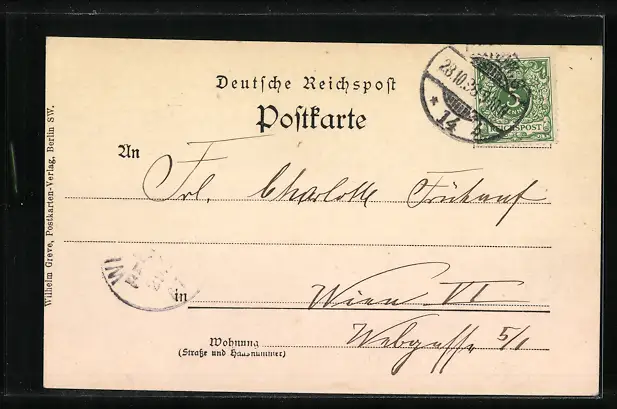 Deutsche Reichspost
Postkarte
28.10.98
* 14 2
5
REICHSPOST
An
Frl. Charlotte Frühauf
in Wien VI
Wohnung Webgasse 5/1
(Straße und Hausnummer)
Wilhelm Greve, Postkarten-Verlag, Berlin SW.